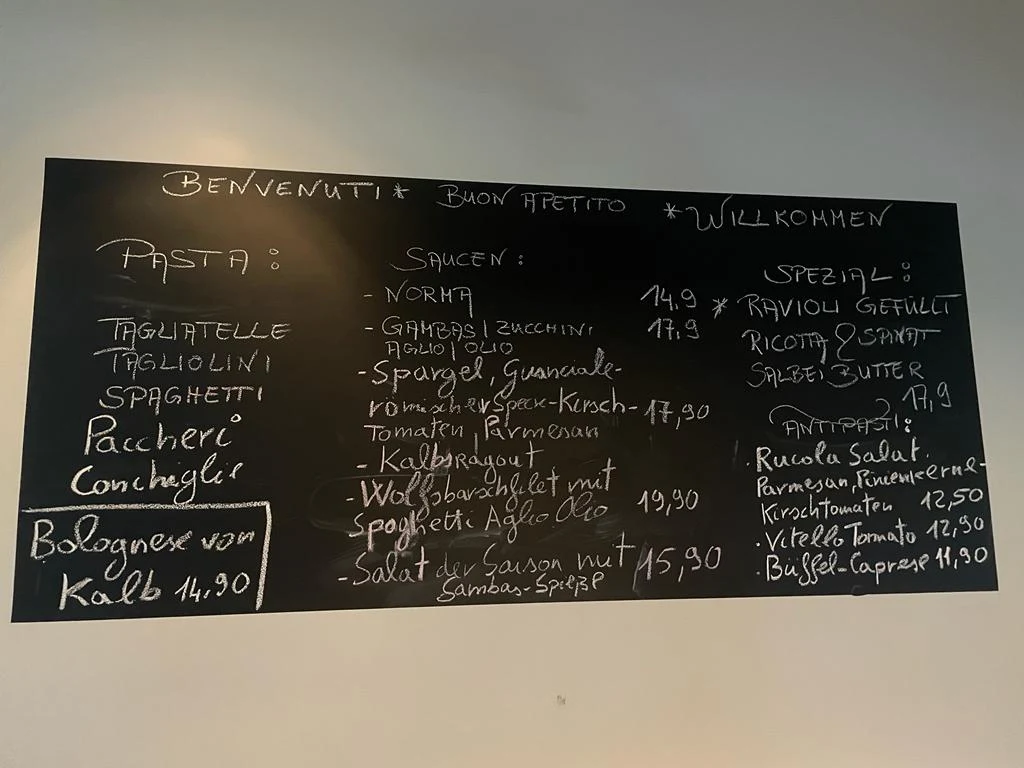 BENVENUTI * BUON APETITO * WILLKOMMEN
PASTA :
TAGLIATELLE
TAGLIOLINI
SPAGHETTI
Paccheri
Conchiglie
Bolognese vom
Kalb 14.90
SAUCEN :
- NORMA 14,9
- GAMBAS | ZUCCHINI 17,9
AGLIO | OLIO
- Spargel, Guanciale-
römischer Speck-Kirsch- 17,90
Tomaten, Parmesan
- Kalbsragout
- Wolfsbarschfilet mit
Spaghetti Aglio Olio 19,90
- Salat der Saison mit 15,90
Gambas-Spieße
SPEZIAL :
* RAVIOLI GEFÜLLT
RICOTTA & SPINAT
SALBEI BUTTER
17,9
ANTIPASTI :
. Rucola Salat.
Parmesan, Pinienkerne-
Kirschtomaten 12,50
. Vitello Tornato 12,90
. Büffel-Caprese 11,90